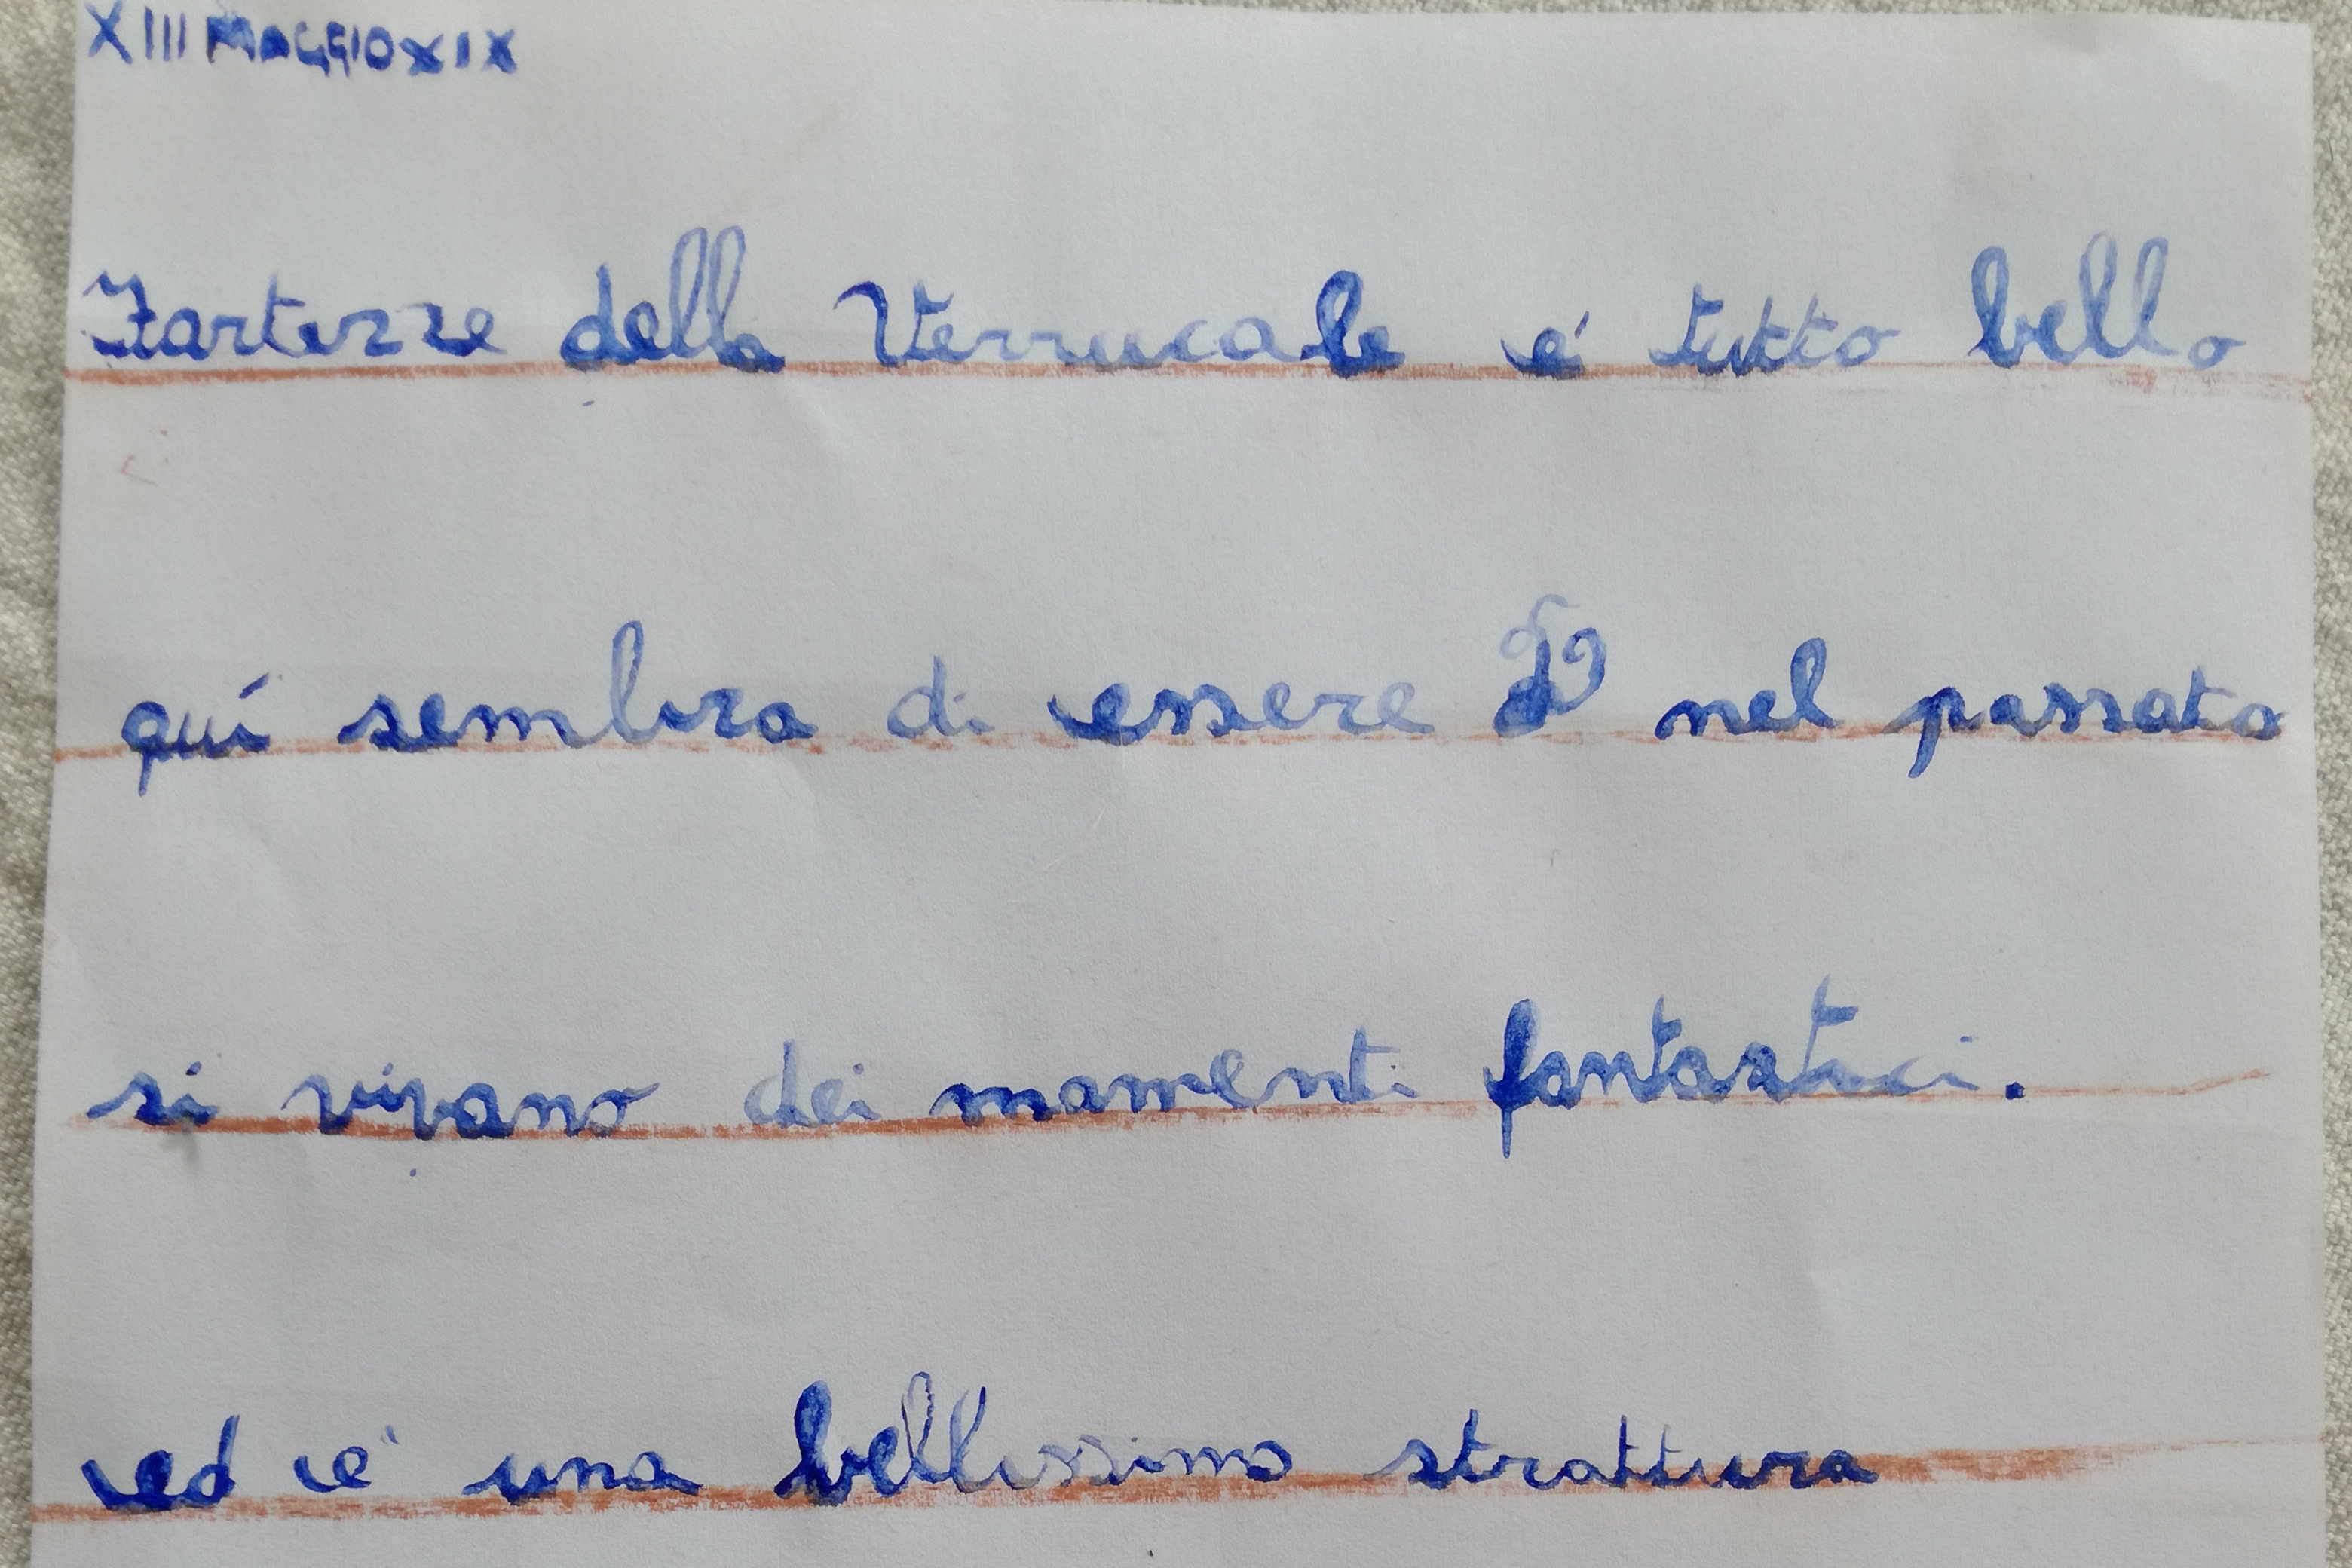 XIII MAGGIO XIX
Fortezze della Verrucale é tutto bello
quí sembra di essere nel passato
si vivono dei momenti fantastici.
ed é una bellissimo strattura